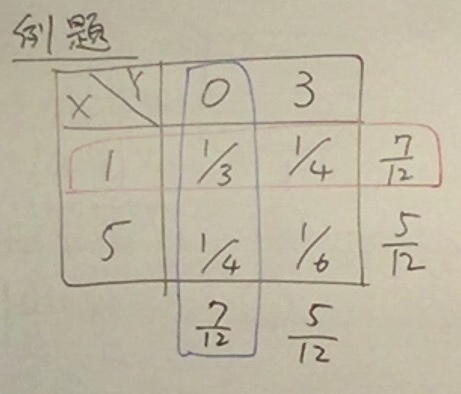 例題
X Y 0 3
1 1/3 1/4 7/12
5 1/4 1/6 5/12
7/12 5/12